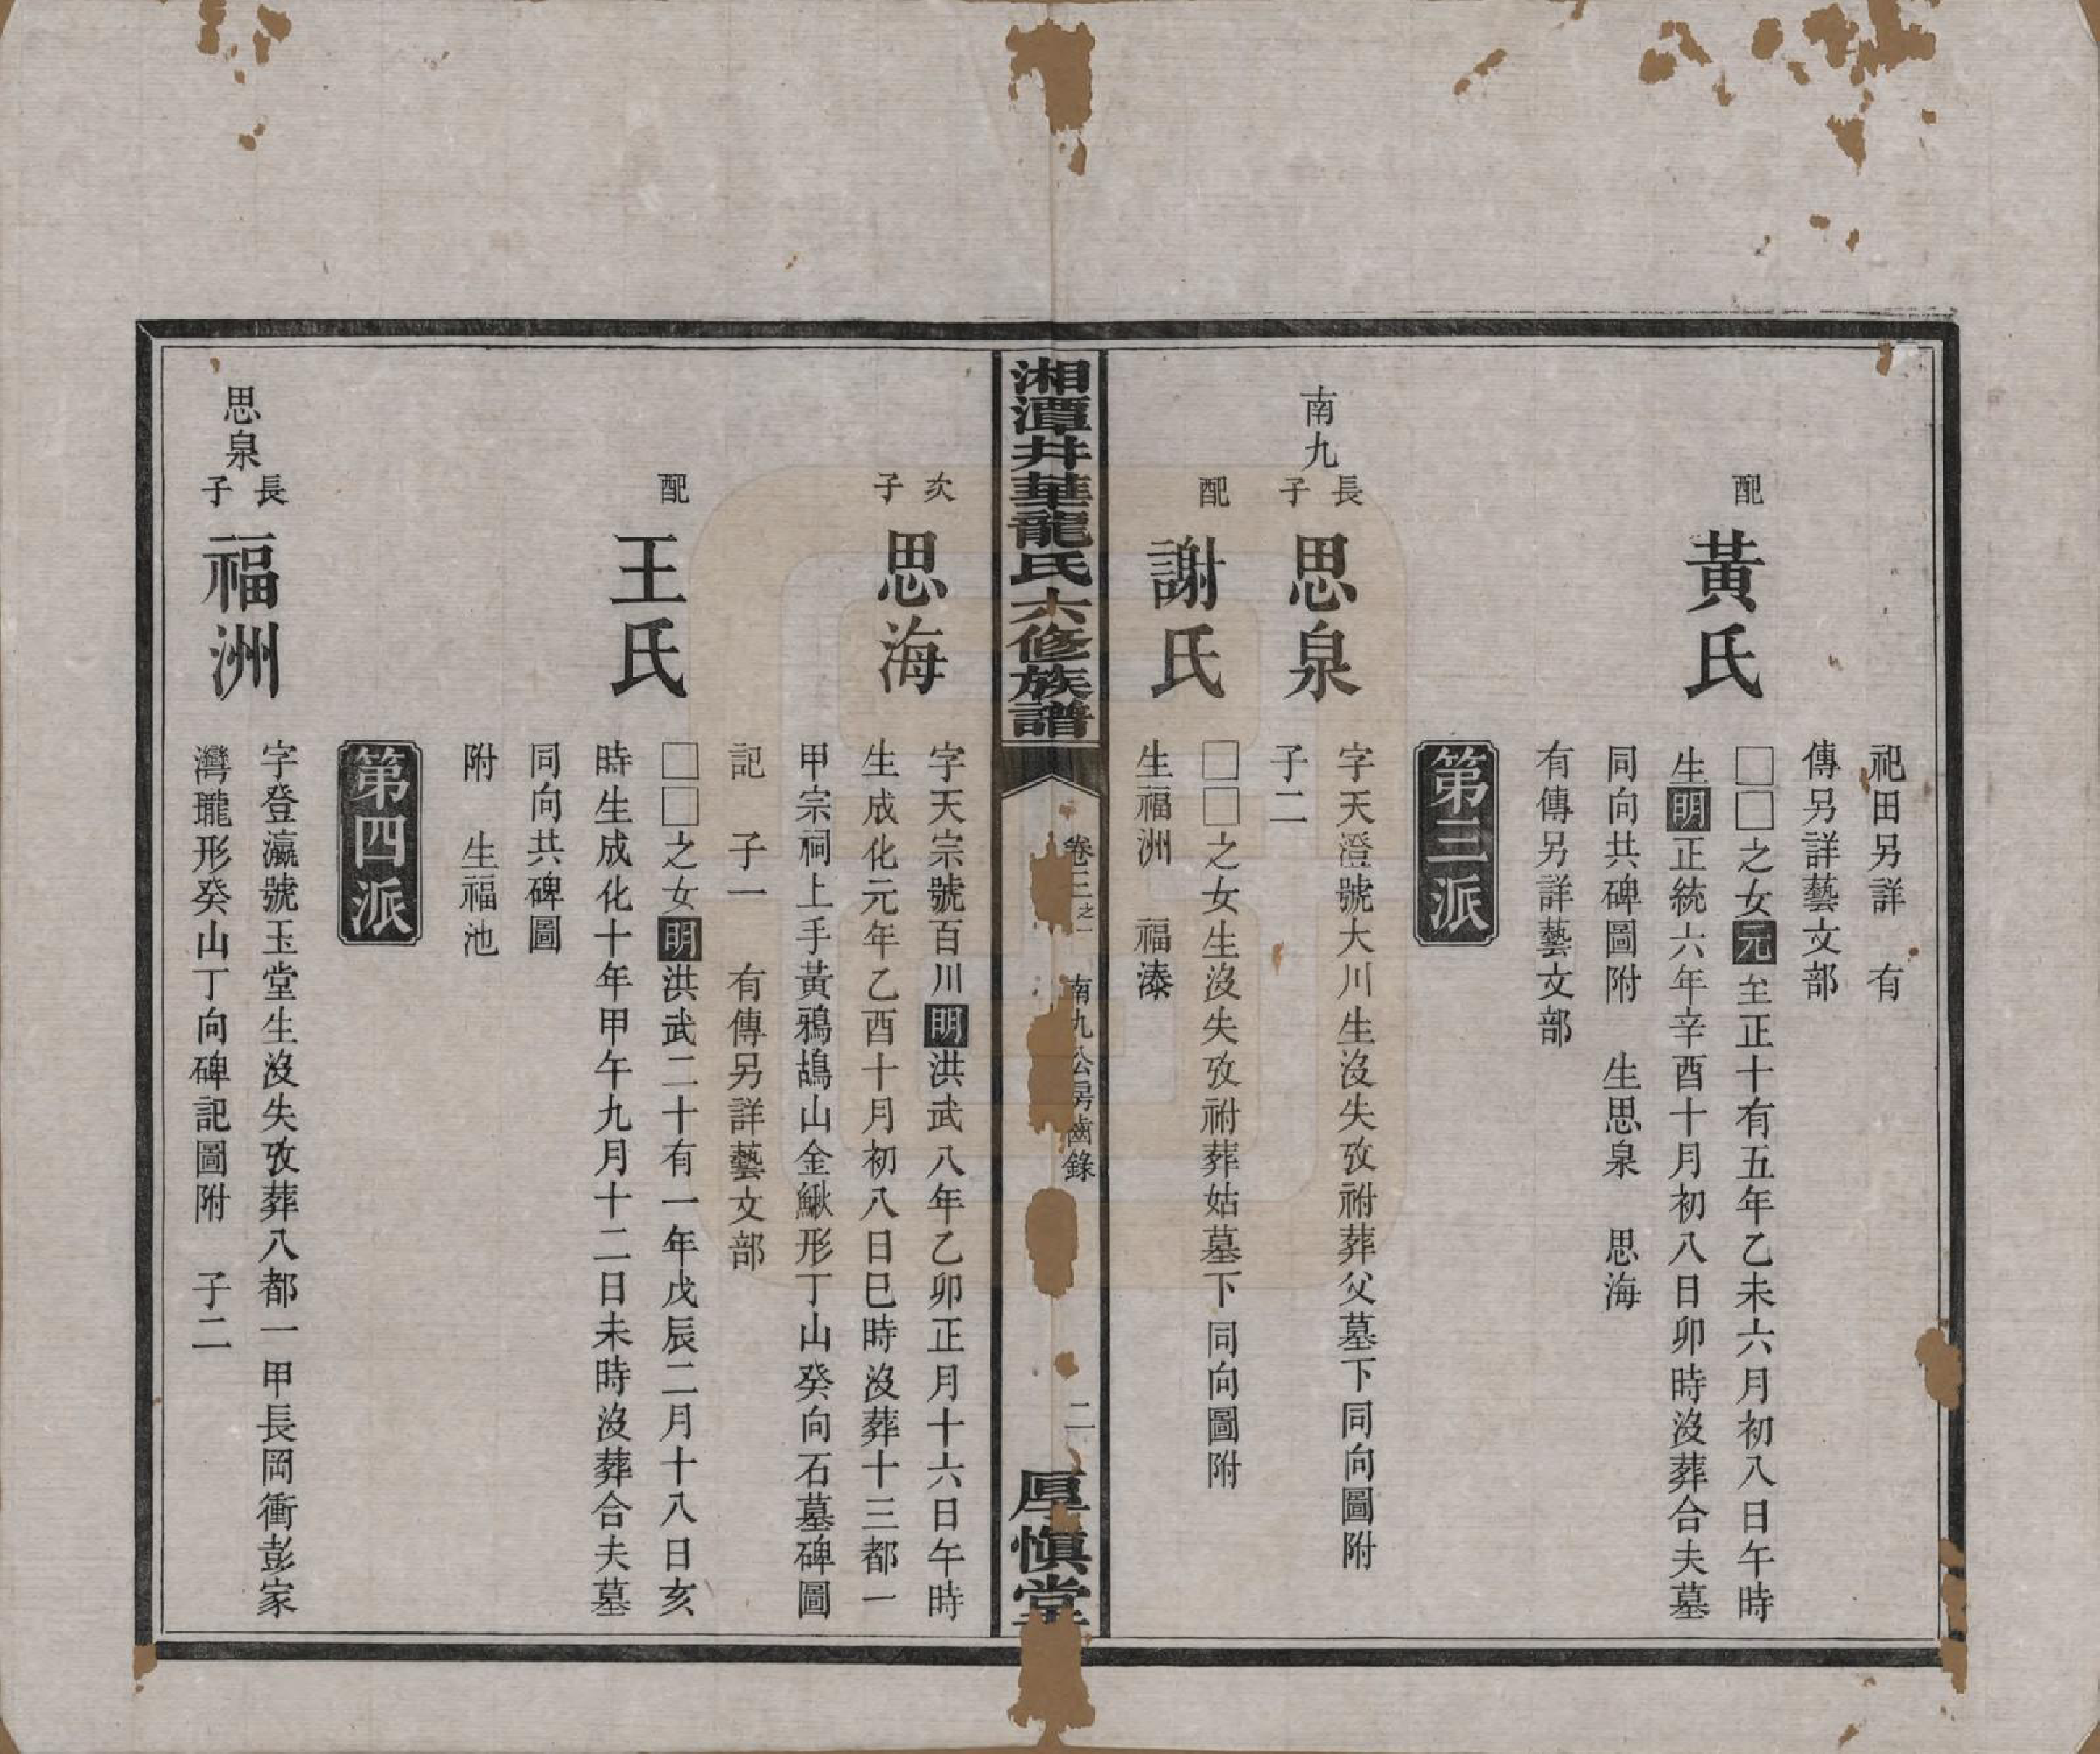 祀田另詳　有
傳另詳藝文部
配
黃氏
□□之女元至正十有五年乙未六月初八日午時
生明正統六年辛酉十月初八日卯時沒葬合夫墓
同向共碑圖附　生思泉　思海
有傳另詳藝文部
第三派
南九
長子
思泉
字天澄號大川生沒失攷祔葬父墓下同向圖附
子二
配
謝氏
□□之女生沒失攷祔葬姑墓下同向圖附
生福洲　福溙
湘潭井華龍氏六修族譜
卷三之一　南九公房齒錄
二
厚慎堂
次子
思海
字天宗號百川明洪武八年乙卯正月十六日午時
生成化元年乙酉十月初八日巳時沒葬十三都一
甲宗祠上手黃鴉鴣山金鰍形丁山癸向石墓碑圖
記　子一　有傳另詳藝文部
配
王氏
□□之女明洪武二十有一年戊辰二月十八日亥
時生成化十年甲午九月十二日未時沒葬合夫墓
同向共碑圖
附　生福池
第四派
思泉
長子
福洲
字登瀛號玉堂生沒失攷葬八都一甲長岡衝彭家
灣瓏形癸山丁向碑記圖附　子二